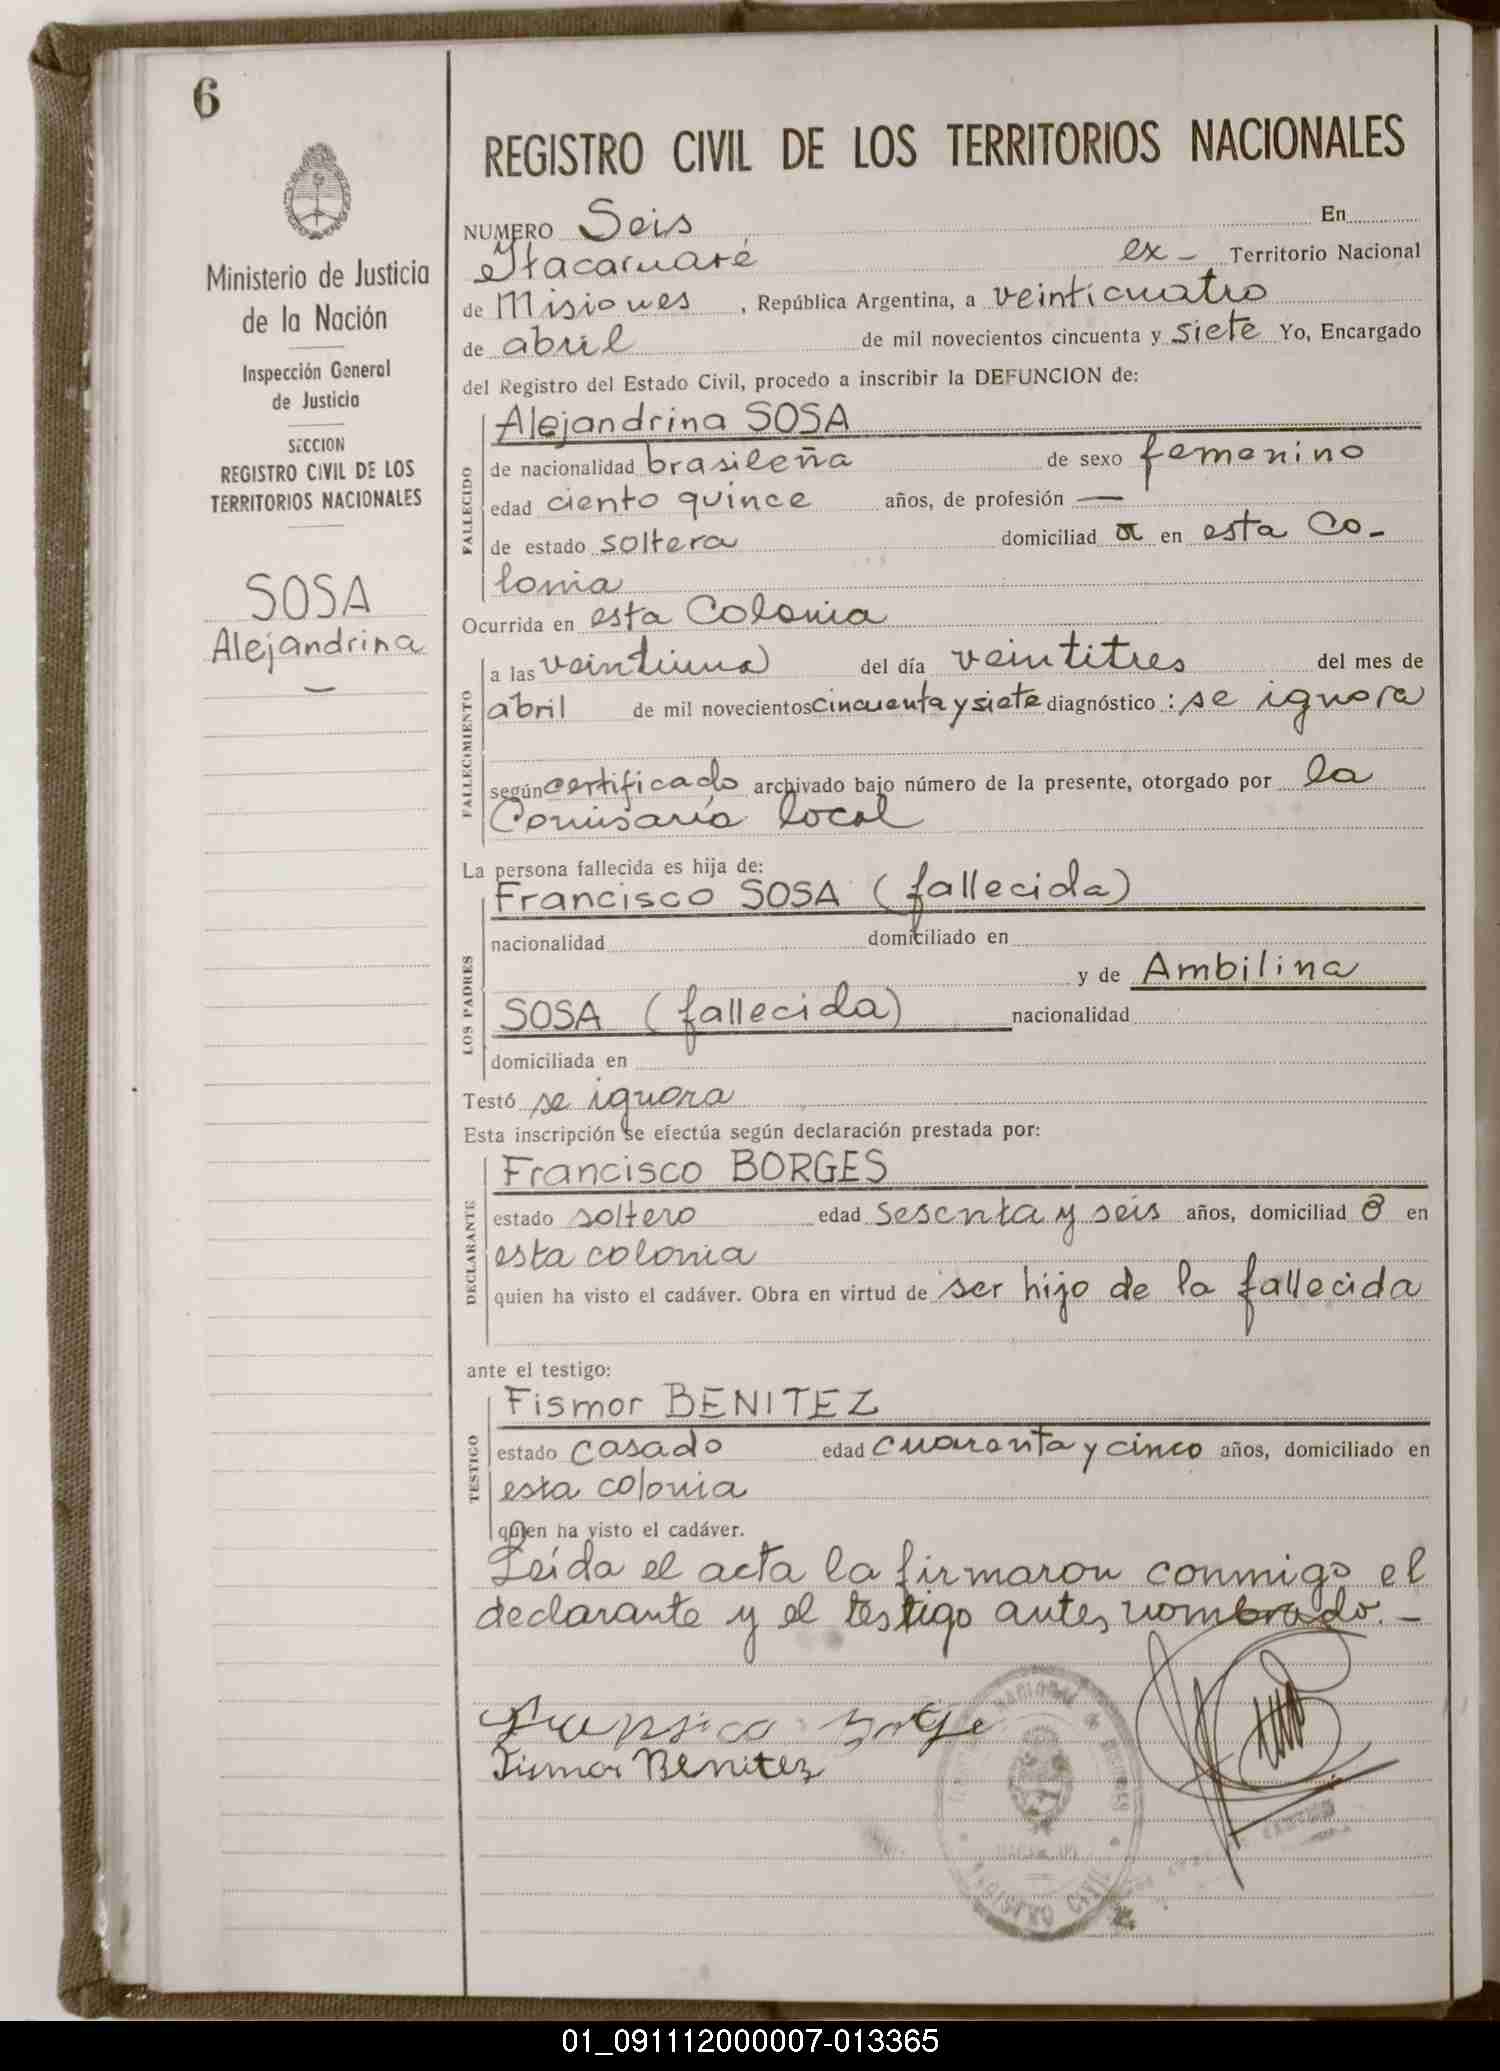 6
Ministerio de Justicia
de la Nación
Inspección General
de Justicia
SECCION
REGISTRO CIVIL DE LOS
TERRITORIOS NACIONALES
SOSA
Alejandrina
REGISTRO CIVIL DE LOS TERRITORIOS NACIONALES
NUMERO Seis En
Itacaruaré ex- Territorio Nacional
de Misiones, República Argentina, a veinticuatro
de abril de mil novecientos cincuenta y siete Yo, Encargado
del Registro del Estado Civil, procedo a inscribir la DEFUNCION de:
FALLECIDO
Alejandrina SOSA
de nacionalidad brasileña de sexo femenino
edad ciento quince años, de profesión —
de estado soltera domiciliad a en esta Co-
lonia
Ocurrida en esta Colonia
FALLECIMIENTO
a las veintiuna del día veintitres del mes de
abril de mil novecientos cincuenta y siete diagnóstico: se ignora
según certificado archivado bajo número de la presente, otorgado por la
Comisaría local
La persona fallecida es hija de:
LOS PADRES
Francisco SOSA (fallecida)
nacionalidad domiciliado en
y de Ambilina
SOSA (fallecida) nacionalidad
domiciliada en
Testó se ignora
Esta inscripción se efectúa según declaración prestada por:
DECLARANTE
Francisco BORGES
estado soltero edad sesenta y seis años, domiciliad o en
esta colonia
quien ha visto el cadáver. Obra en virtud de ser hijo de la fallecida
ante el testigo:
TESTIGO
Fismor BENITEZ
estado casado edad cuarenta y cinco años, domiciliado en
esta colonia
quien ha visto el cadáver.
Leída el acta la firmaron conmigo el
declarante y el testigo antes nombrado.-
Fismor Benitez
REGISTRO CIVIL
01_091112000007-013365